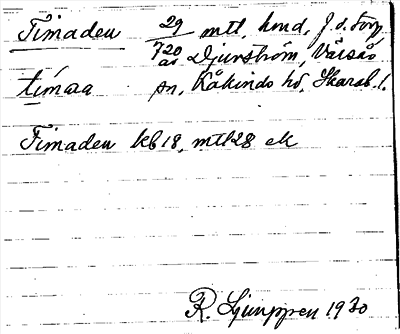 Timaden 29/720 mtl, hmd, J. d. Torp
av Djurström, Varsås
tímaa sn, Kåkinds hd, Skarab. l.
Timaden kb 18, mtl 28 ek
R. Ljunggren 1930